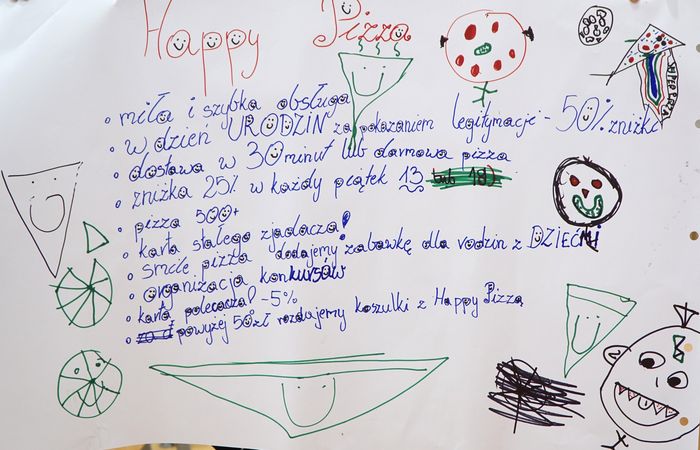 Happy Pizza
• miła i szybka obsługa
• w dzień URODZIN za pokazaniem legitymacje - 50% zniżki
• dostawa w 30 minut lub darmowa pizza
• zniżka 25% w każdy piątek 13
• pizza 500+
• karta stałego zjadacza!
• smile pizza - dodajemy zabawkę dla rodzin z DZIEĆMI
• organizacja konkursów
• karta polecacza! -5%
• powyżej 50zł rozdajemy koszulki z Happy Pizza